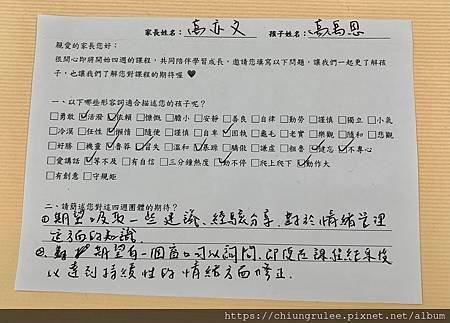 家長姓名：高亦文 孩子姓名：高禹恩
親愛的家長您好：
很開心即將開始四週的課程，共同陪伴學習成長，邀請您填寫以下問題，讓我們一起更了解孩
子，也讓我們了解您對課程的期待喔♥
一、以下哪些形容詞適合描述您的孩子呢？
□勇敢 ☑活潑 ☑依賴 □慷慨 □膽小 □安靜 □善良 □自律 □勤勞 □謹慎 □獨立 □小氣
□冷漠 □任性 ☑懶惰 □隨便 □謹慎 □自卑 ☑固執 □龜毛 □老實 □樂觀 □隨和 □悲觀
□好勝 □機靈 ☑魯莽 ☑冒失 □溫和 ☑暴躁 □驕傲 □謙虛 □粗魯 ☑健忘 ☑不專心
□愛講話 ☑等不及 □有自信 □三分鐘熱度 ☑動不停 □爬上爬下 ☑動作大
□有創意 □守規矩
二、請簡述您對這四週團體的期待？
①期望吸取一些建議、經驗分享、對於情緒管理
方面的知識.
②期望有一個窗口可以詢問.即使在課程結束後
以達到持續性的情緒方面修正.
https://chiungrulee.pixnet.net/album